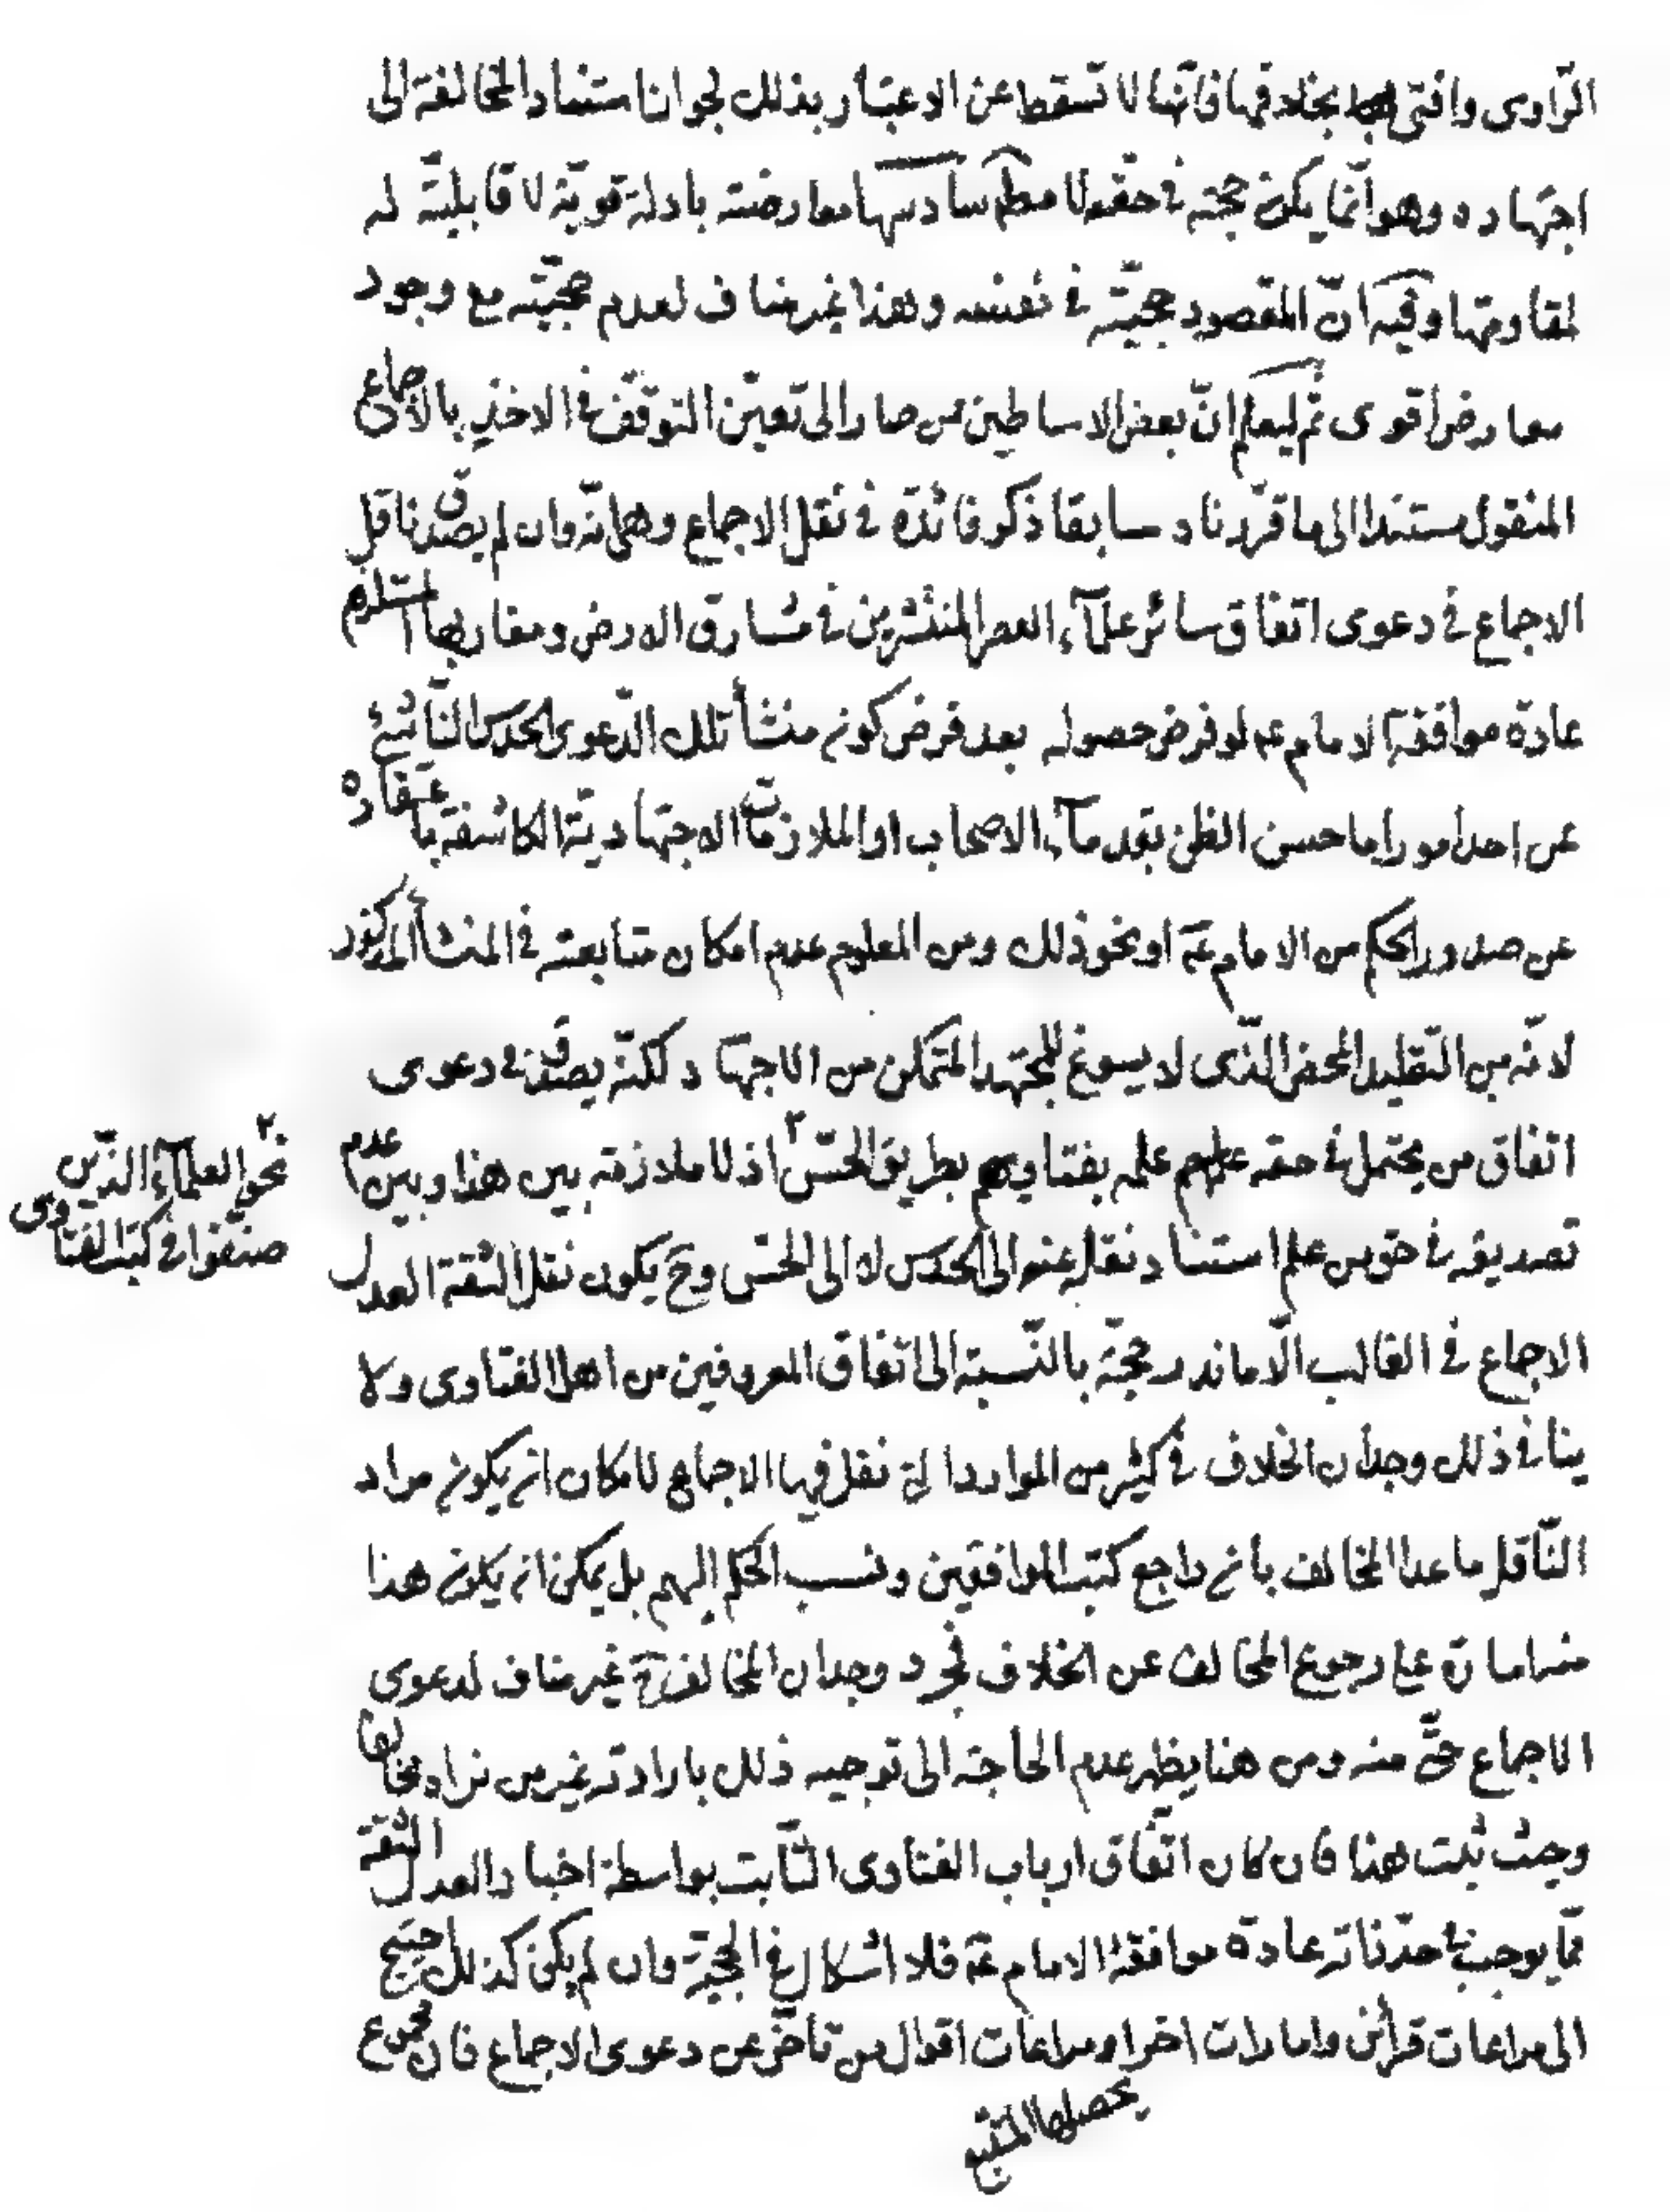 الرّاوى وافتى بخلافها فانّها لا تسقط عن الاعتبار بذلك لجواز استناد المخالفة الى
اجتهاده وهو انّما يكون حجّة فى حقه لا مطم سادسها معارضته بادلة قويّة لا قابليّة له
لمقاومتها وفيه انّ المقصود حجيّته فى نفسه وهذا غير مناف لعدم حجيّته مع وجود
معارض اقوى ثم ليعلم انّ بعض الاساطين ممن صار الى تعيّن التوقّف فى الاخذ بالاجماع
المنقول مستندا الى ما قرّرناه سابقا ذكر فائدة فى نقل الاجماع وهى انّه وان لم يصدق ناقل
الاجماع فى دعوى اتفاق سائر علمآء العصر المنتشرين فى مشارق الارض ومغاربها المستلزم
عادة موافقة الامام ع لو فرض حصوله بعد فرض كونه منشأ تلك الدّعوى الحدس النّاشئ
عن احد امور اما حسن الظن بقدمآء الاصحاب او الملازمات الاجتهاديّة الكاشفة باعتقاده
عن صدور الحكم من الامام عَ او نحو ذلك ومن المعلوم عدم امكان متابعته فى المنشأ المذكور
لانّه من التّقليد المحض الّذى لا يسوغ للمجتهد المتمكن من الاجتهاد لكنّه يصدق فى دعوى
اتفاق من يحتمل فى حقه علمه بفتاويهم بطريق الحسّ ٢ اذ لا ملازمة بين هذا وبين عدم
٢ نحو العلمآء الذّين
صنّفوا فى كتب الفتاوى
تصديقه فى حق من علم استناد نقله عنه الى الحدس لا الى الحسّ وح يكون نقل الثقة العدل
الاجماع فى الغالب الّا ما ندر حجّة بالنّسبة الى اتفاق المعروفين من اهل الفتاوى ولا
ينافى ذلك وجدان الخلاف فى كثير من الموارد التى نقل فيها الاجماع لامكان ان يكون مراد
النّاقل ما عدا المخالف بان راجع كتب الموافقين ونسب الحكم اليهم بل يمكن ان يكون هذا
منه امارة على رجوع المخالف عن الخلاف فمجرد وجدان المخالف ح غير مناف لدعوى
الاجماع حتّى منه ومن هنا يظهر عدم الحاجة الى توجيه ذلك بارادته غير من نراه مخالفا
وحيث ثبت هذا فان كان اتّفاق ارباب الفتاوى الثّابت بواسطة اخبار العدل الثقة
ممّا يوجب باحدّنا عادة موافقة الامام عَ فلا اشكال فى الحجيّة وان لم يكن كذلك احتيج
الى مراعات قرائن وامارات اخر او مراعات اقوال من تأخّر عن دعوى الاجماع فان مجموع
يحصلها المتتبع